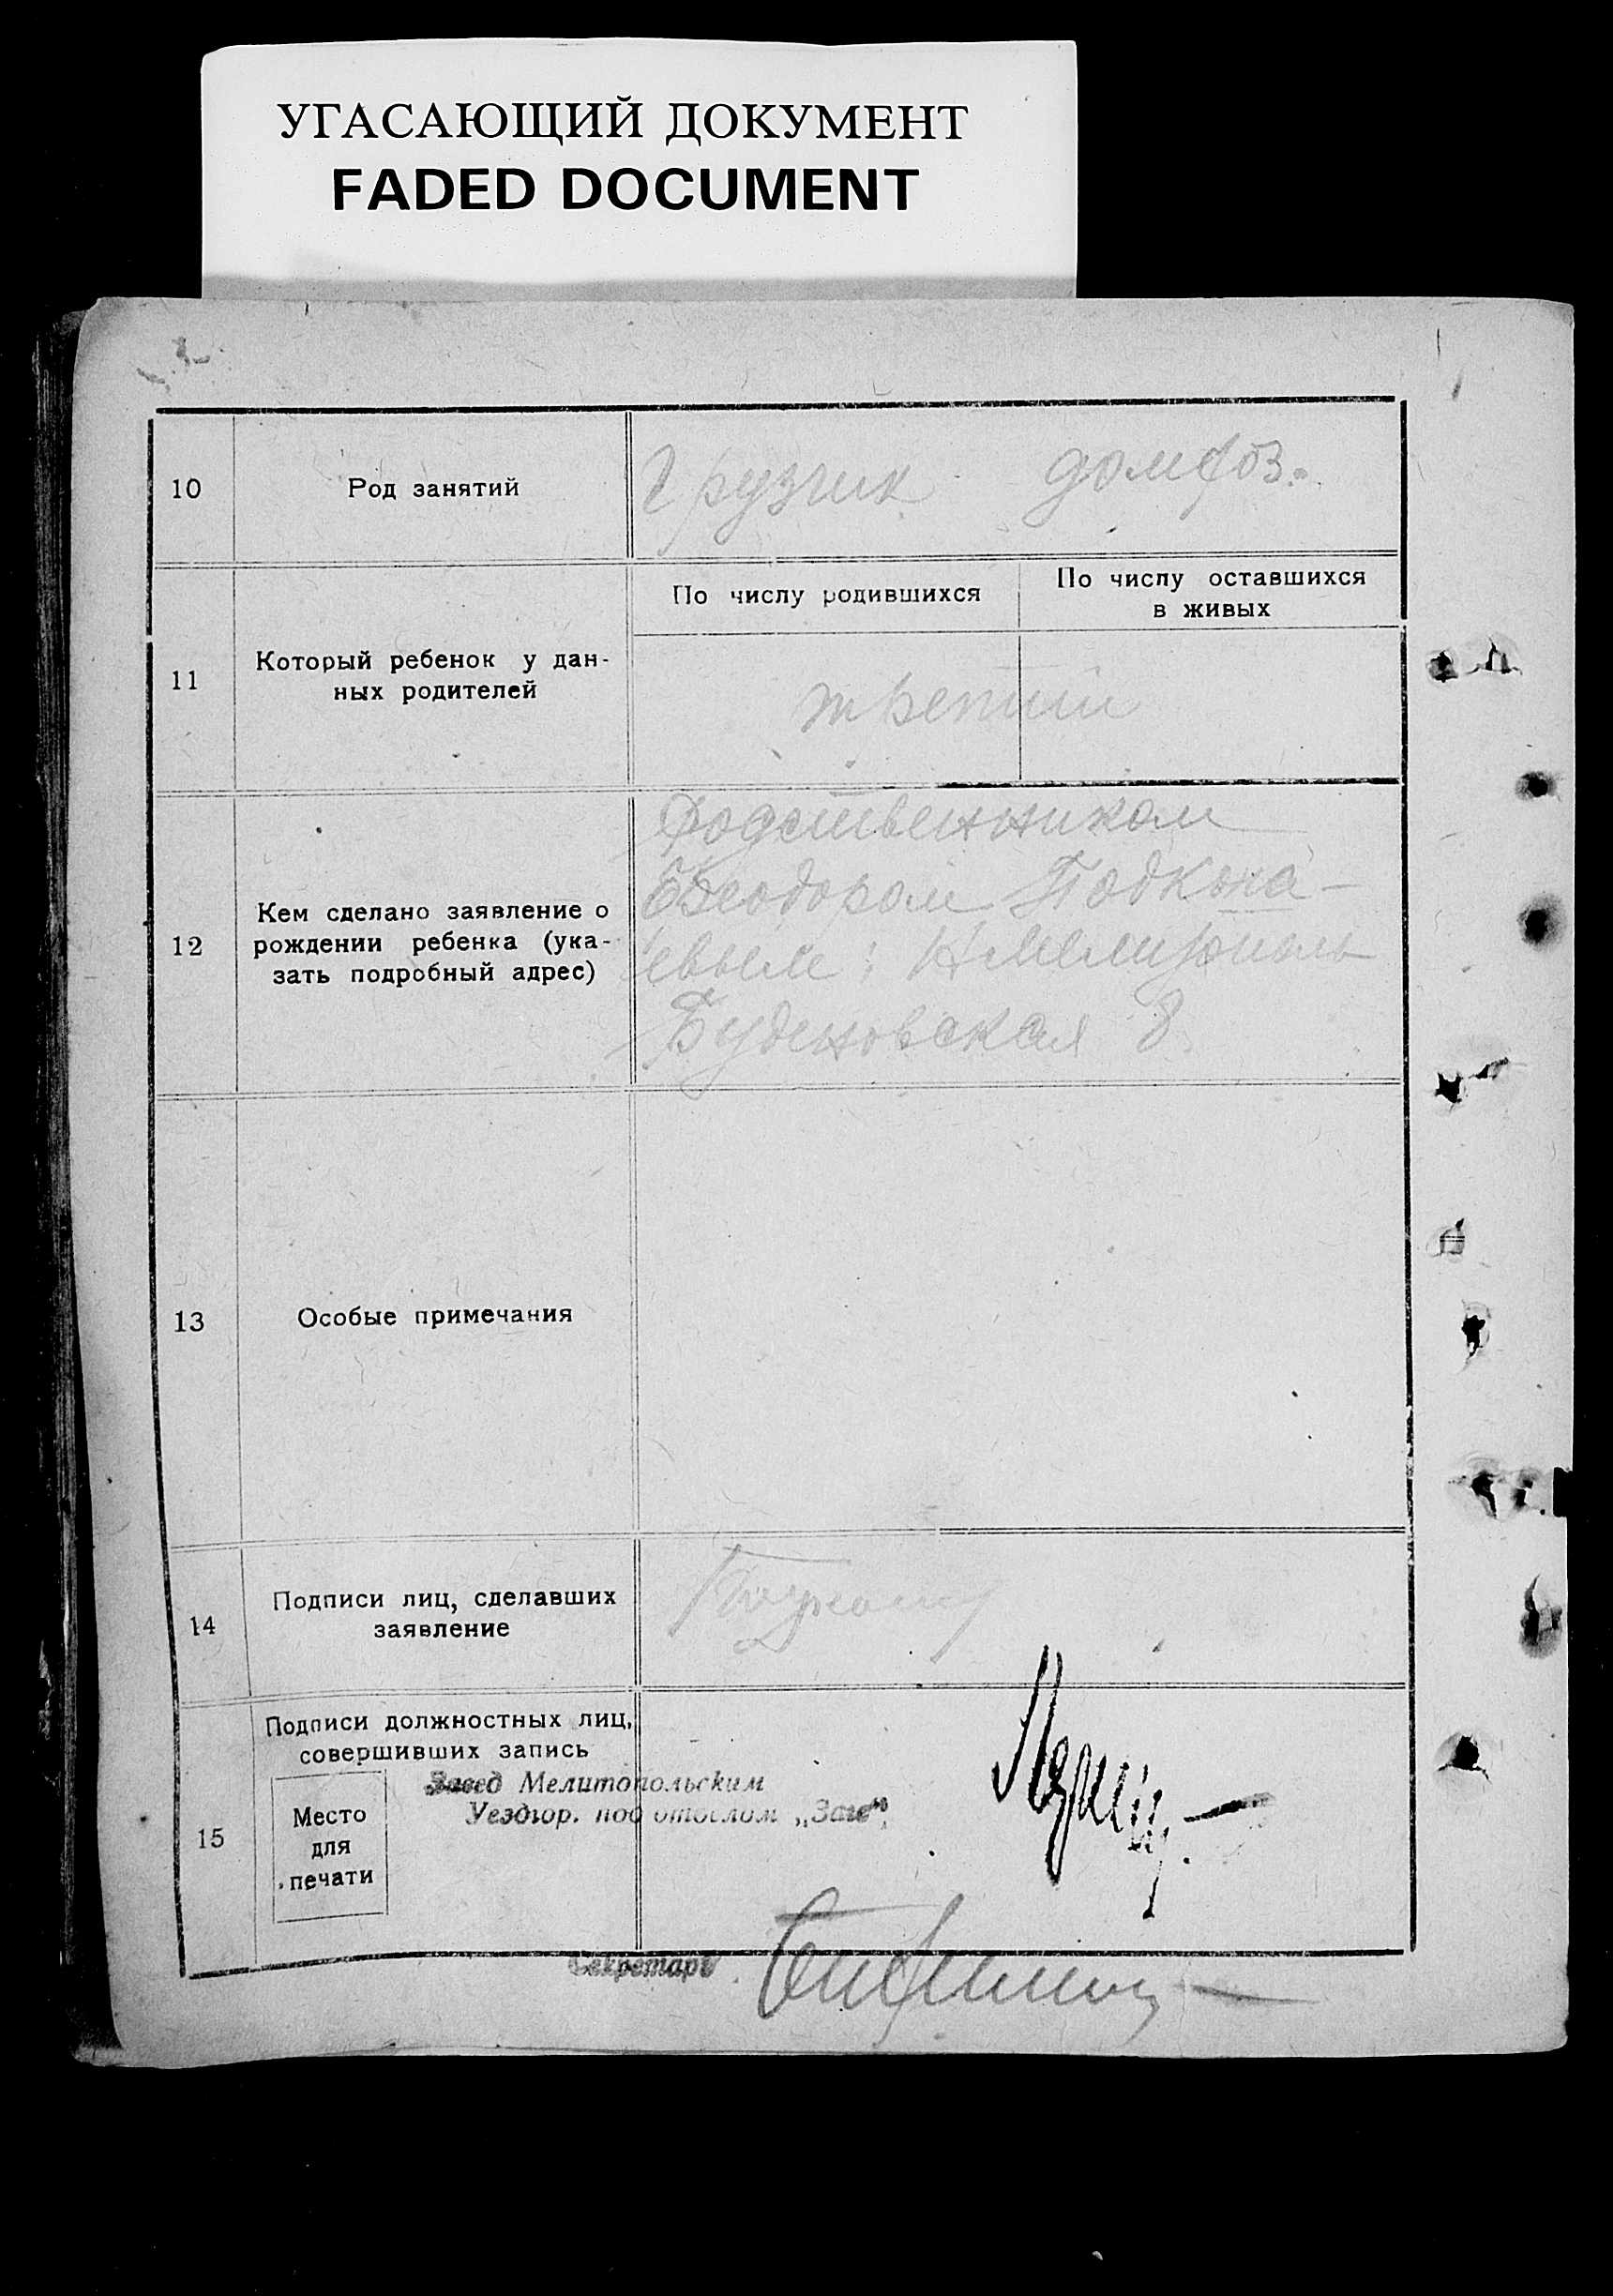 УГАСАЮЩИЙ ДОКУМЕНТ
FADED DOCUMENT
10
Род занятий
Грузчик домхоз.
11
Который ребенок у дан-
ных родителей
По числу родившихся
По числу оставшихся
в живых
третий
12
Кем сделано заявление о
рождении ребенка (ука-
зать подробный адрес)
Родственником
Феодором
евым: Мелитополь
Буденовская 8
13
Особые примечания
14
Подписи лиц, сделавших
заявление
15
Подписи должностных лиц,
совершивших запись
Место
для
печати
Завед Мелитопольским
Уездгор. под отделом „Загс“
Секретарь